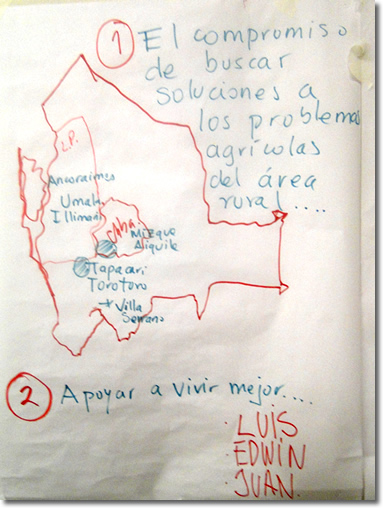 1 El compromiso
de buscar
soluciones a
los problemas
agrícolas
del área
rural....
L.P.
Ancoraimes
Umala
Illimani
Cbba
Mizque
Aiquile
Tapacari
Torotoro
Villa
Serrano
2 Apoyar a vivir mejor....
· LUIS
EDWIN
· JUAN.